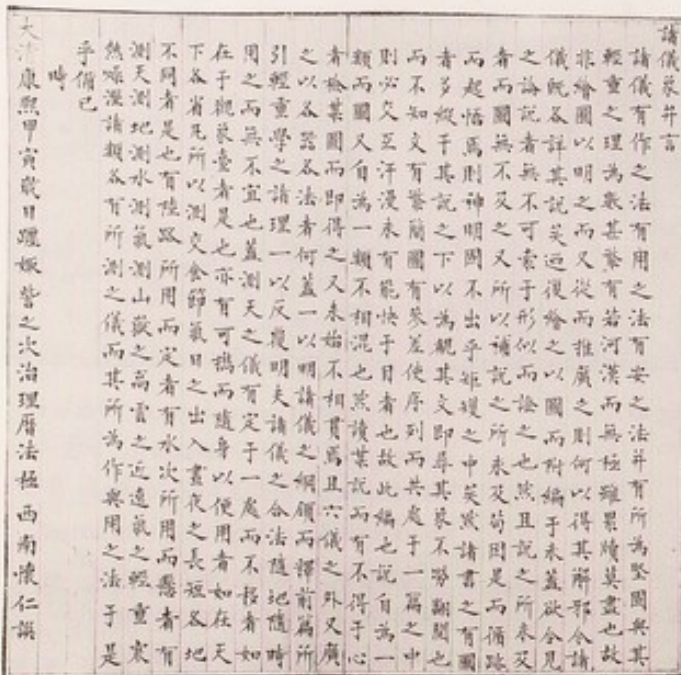 諸儀象弁言
諸儀有作之法有用之法有安之法并有所為堅固與其
輕重之理為數甚繁有若河漢而無極雖累牘莫盡也故
非繪圖以明之而又從而推廣之則何以得其解耶今諸
儀既各詳其說矣迺復繪之以圖而附編于末蓋欲令見
之論說者無不可索于形似而諗之也然且說之所未及
者而圖無不及之又所以補說之所未及苟因是而循跡
而起悟焉則神明固不出乎矩矱之中矣然諸書之有圖
者多縱于其說之下以為觀其文即尋其象不勞翻閱也
而不知文有繁簡圖有參差使序列而共處于一篇之中
則必交互汗漫未有能快于目者也故此編也說自為一
類而圖又自為一類不相混也然讀其說而有不得于心
者檢其圖而即得之又未始不相貫焉且六儀之外又廣
之以各器各法者何蓋一以明諸儀之綱領而釋前篇所
引輕重學之諸理一以反覆明夫諸儀之合法隨地隨時
用之而無不宜也蓋測天之儀有定于一處而不移者如
在于觀象臺者是也亦有可攜而隨身以便用者如在天
下各省凡所以測交食節氣日之出入晝夜之長短各地
不同者是也有陸路所用而定者有水次所用而懸者有
測天測地測水測氣測山嶽之高雲之近遠氣之輕重寒
然燥溼諸類各有所測之儀而其所為作與用之法于是
乎備已
時
大清康熙甲寅歲日躔娵訾之次治理曆法極西南懷仁譔